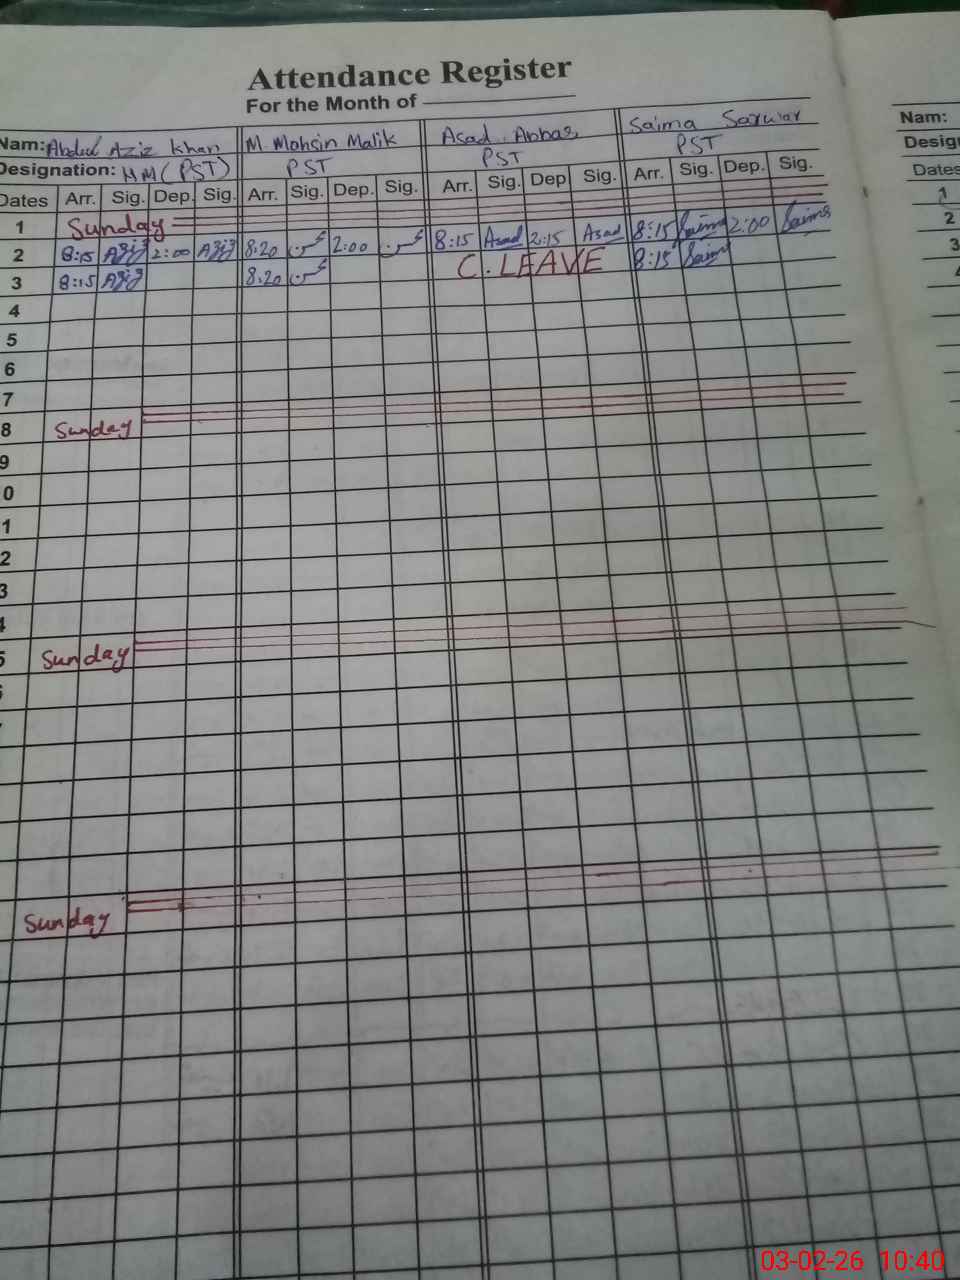 Attendance Register
For the Month of
Nam: Abdul Aziz Khan M. Mohsin Malik Asad Abbas Saima Sarwar Nam:
Designation: HM (PST) PST PST PST Desig
Dates Arr. Sig. Dep. Sig. Arr. Sig. Dep. Sig. Arr. Sig. Dep Sig. Arr. Sig. Dep. Sig. Dates
1 Sunday 1
2 8:15 Aziz 2:00 Aziz 8:20 2:00 8:15 Asad 2:15 Asad 8:15 Saima 2:00 Saima 2
3 8:15 Aziz 8:20 C. LEAVE 8:15 Saima 3
4
5
6
7
8 Sunday
9
0
1
2
3
4
5 Sunday
Sunday
03-02-26 10:40